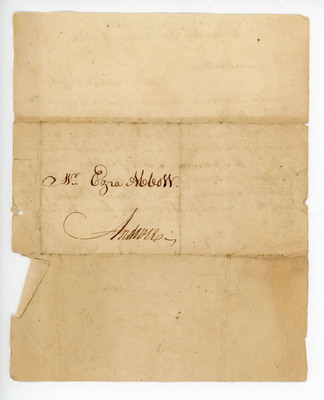 Mr. Ezra Abbott.
Andover